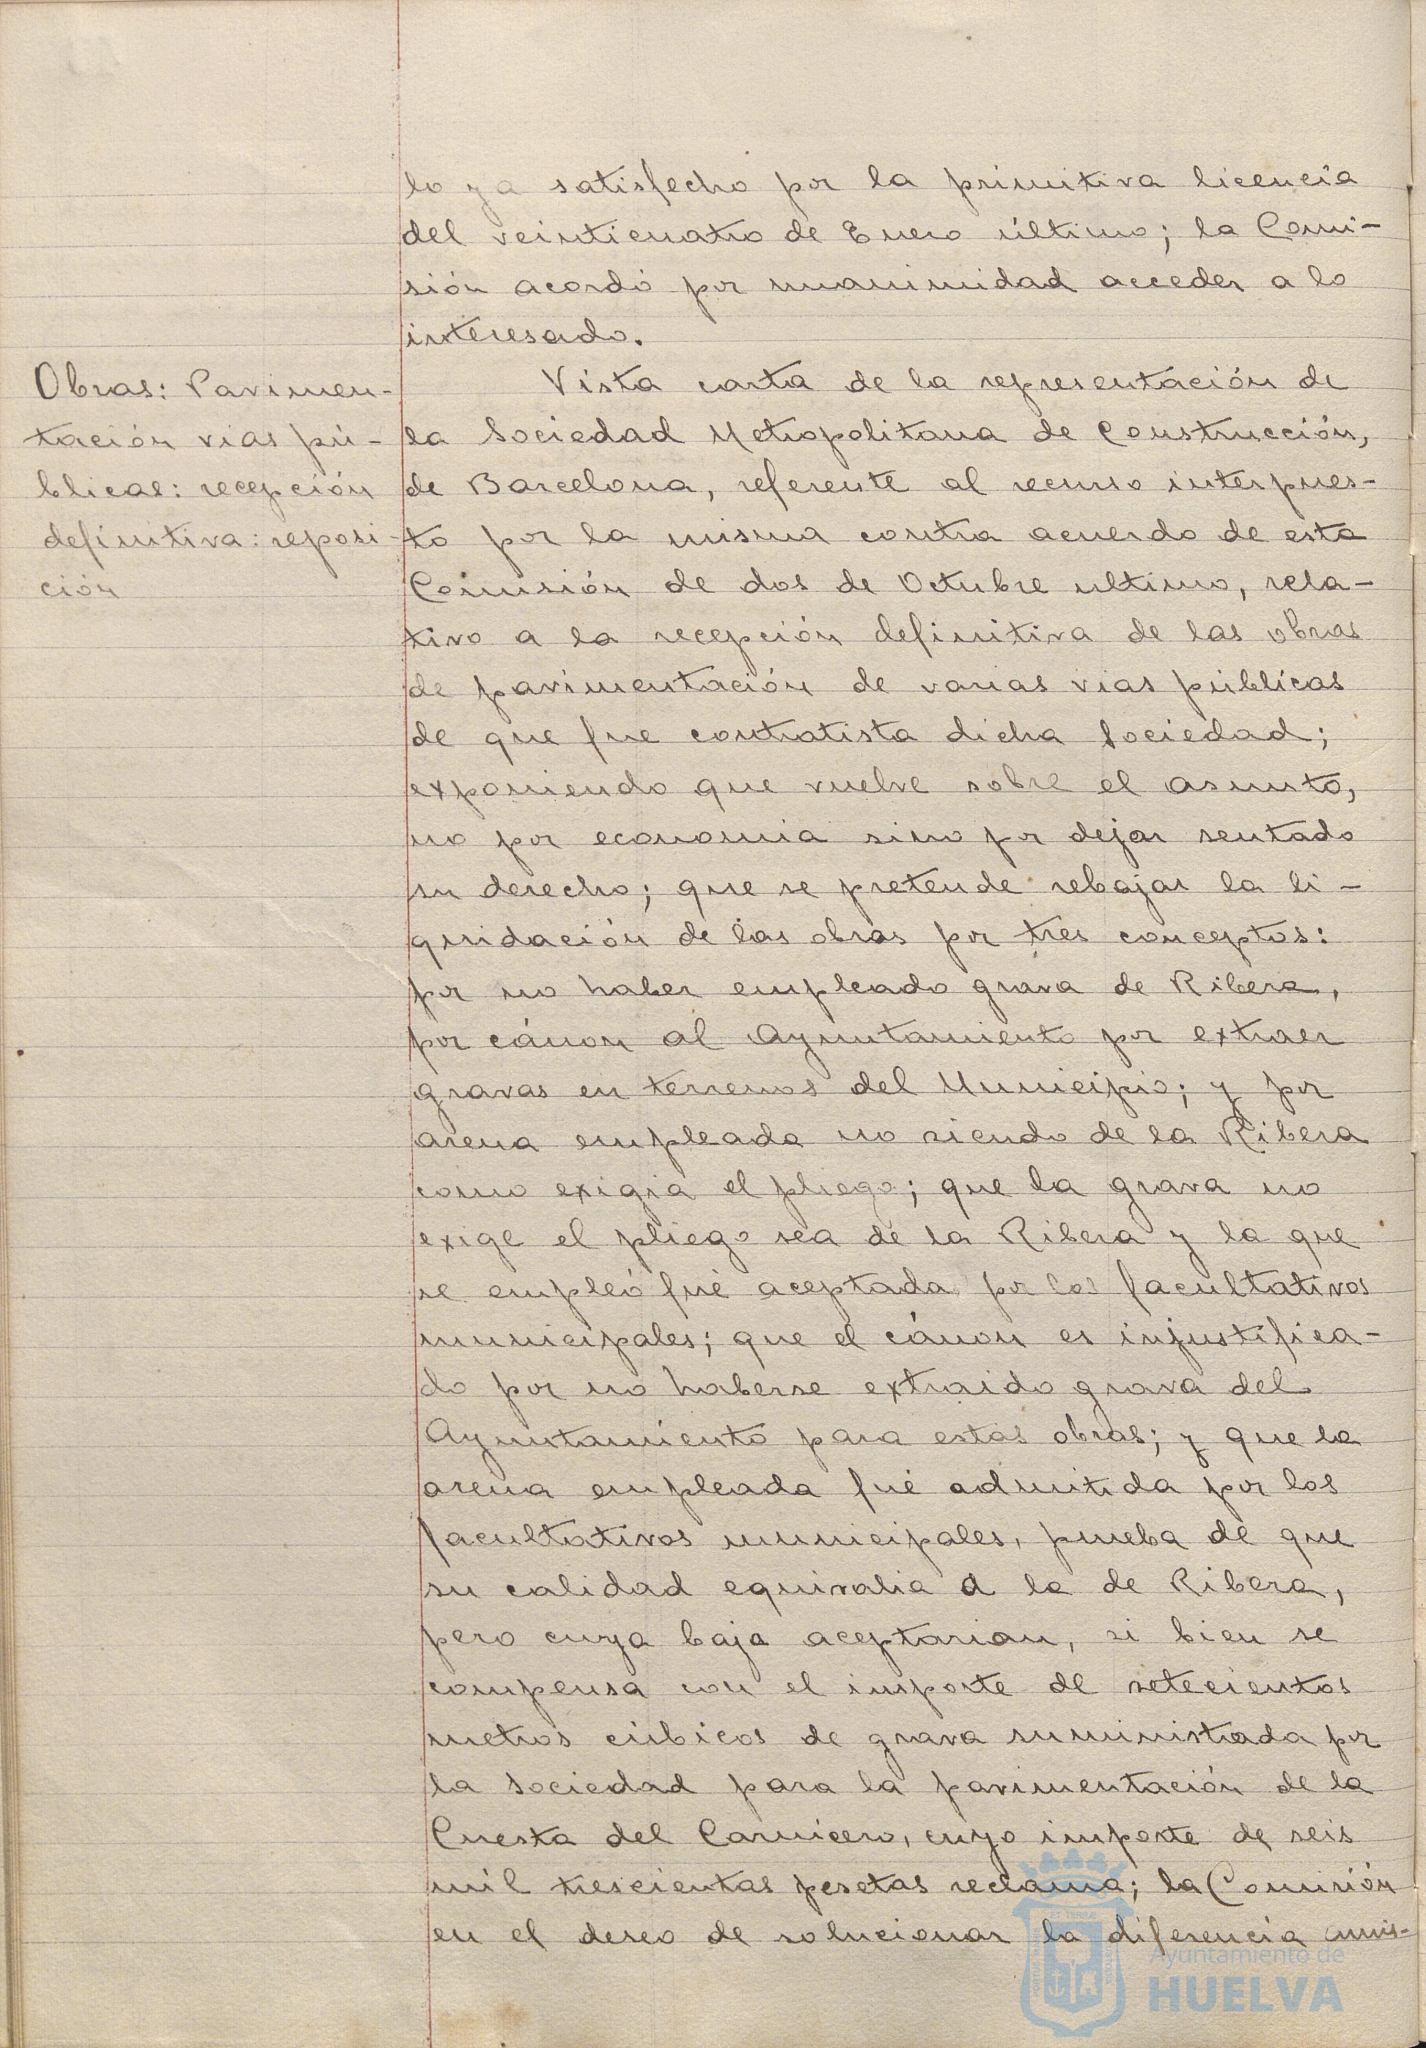 lo ya satisfecho por la primitiva licencia
del veinticuatro de Enero último; la Comi-
sión acordó por unanimidad acceder a lo
interesado.
Obras: Pavimen-
tación vias pú-
blicas: recepción
definitiva: reposi-
ción
Vista carta de la representación de
la Sociedad Metropolitana de Construcción,
de Barcelona, referente al recurso interpues-
to por la misma contra acuerdo de esta
Comisión de dos de Octubre ultimo, rela-
tivo a la recepción definitiva de las obras
de pavimentación de varias vias públicas
de que fue contratista dicha Sociedad;
exponiendo que vuelve sobre el asunto,
no por economia sino por dejar sentado
su derecho; que se pretende rebajar la li-
quidación de las obras por tres conceptos:
por no haber empleado grava de Ribera,
por cánon al Ayuntamiento por extraer
gravas en terrenos del Municipio; y por
arena empleada no siendo de la Ribera
como exigia el pliego; que la grava no
exige el pliego sea de la Ribera y la que
se empleó fué aceptada por los facultativos
municipales; que el cánon es injustifica-
do por no haberse extraido grava del
Ayuntamiento para estas obras; y que la
arena empleada fué admitida por los
facultativos municipales, prueba de que
su calidad equivalia a la de Ribera,
pero cuya baja aceptarian, si bien se
compensa con el importe de setecientos
metros cúbicos de grava suministrada por
la Sociedad para la pavimentación de la
Cuesta del Carnicero, cuyo importe de seis
mil trescientas pesetas reclama; la Comisión
en el deseo de solucionar la diferencia amis-
Ayuntamiento de
HUELVA